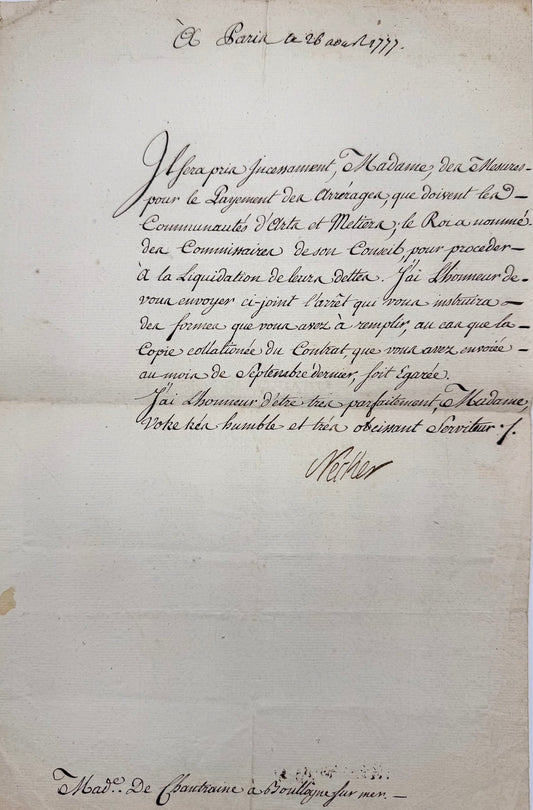 À Paris le 26 aoust 1777.
Il sera pris Incessament, Madame, des Mesures-
pour le Payement des Arrérages, que doivent les-
Communautés d'Arts et Metiers; le Roi a nommé-
des Commissaires de son Conseil, pour procéder-
à la Liquidation de leurs dettes. J'ai L'honneur de-
vous envoyer ci-joint l'arrêt qui vous instruira-
des formes que vous avez à remplir, au cas que la-
Copie collationée du Contrat, que vous avez envoiée-
au mois de Septembre dernier, soit Egarée.
J'ai L'honneur d'être très parfaitement, Madame,
Votre très humble et très obeissant Serviteur ./.
Necker
Mad.e De Chantraine à Boullogne sur mer.-